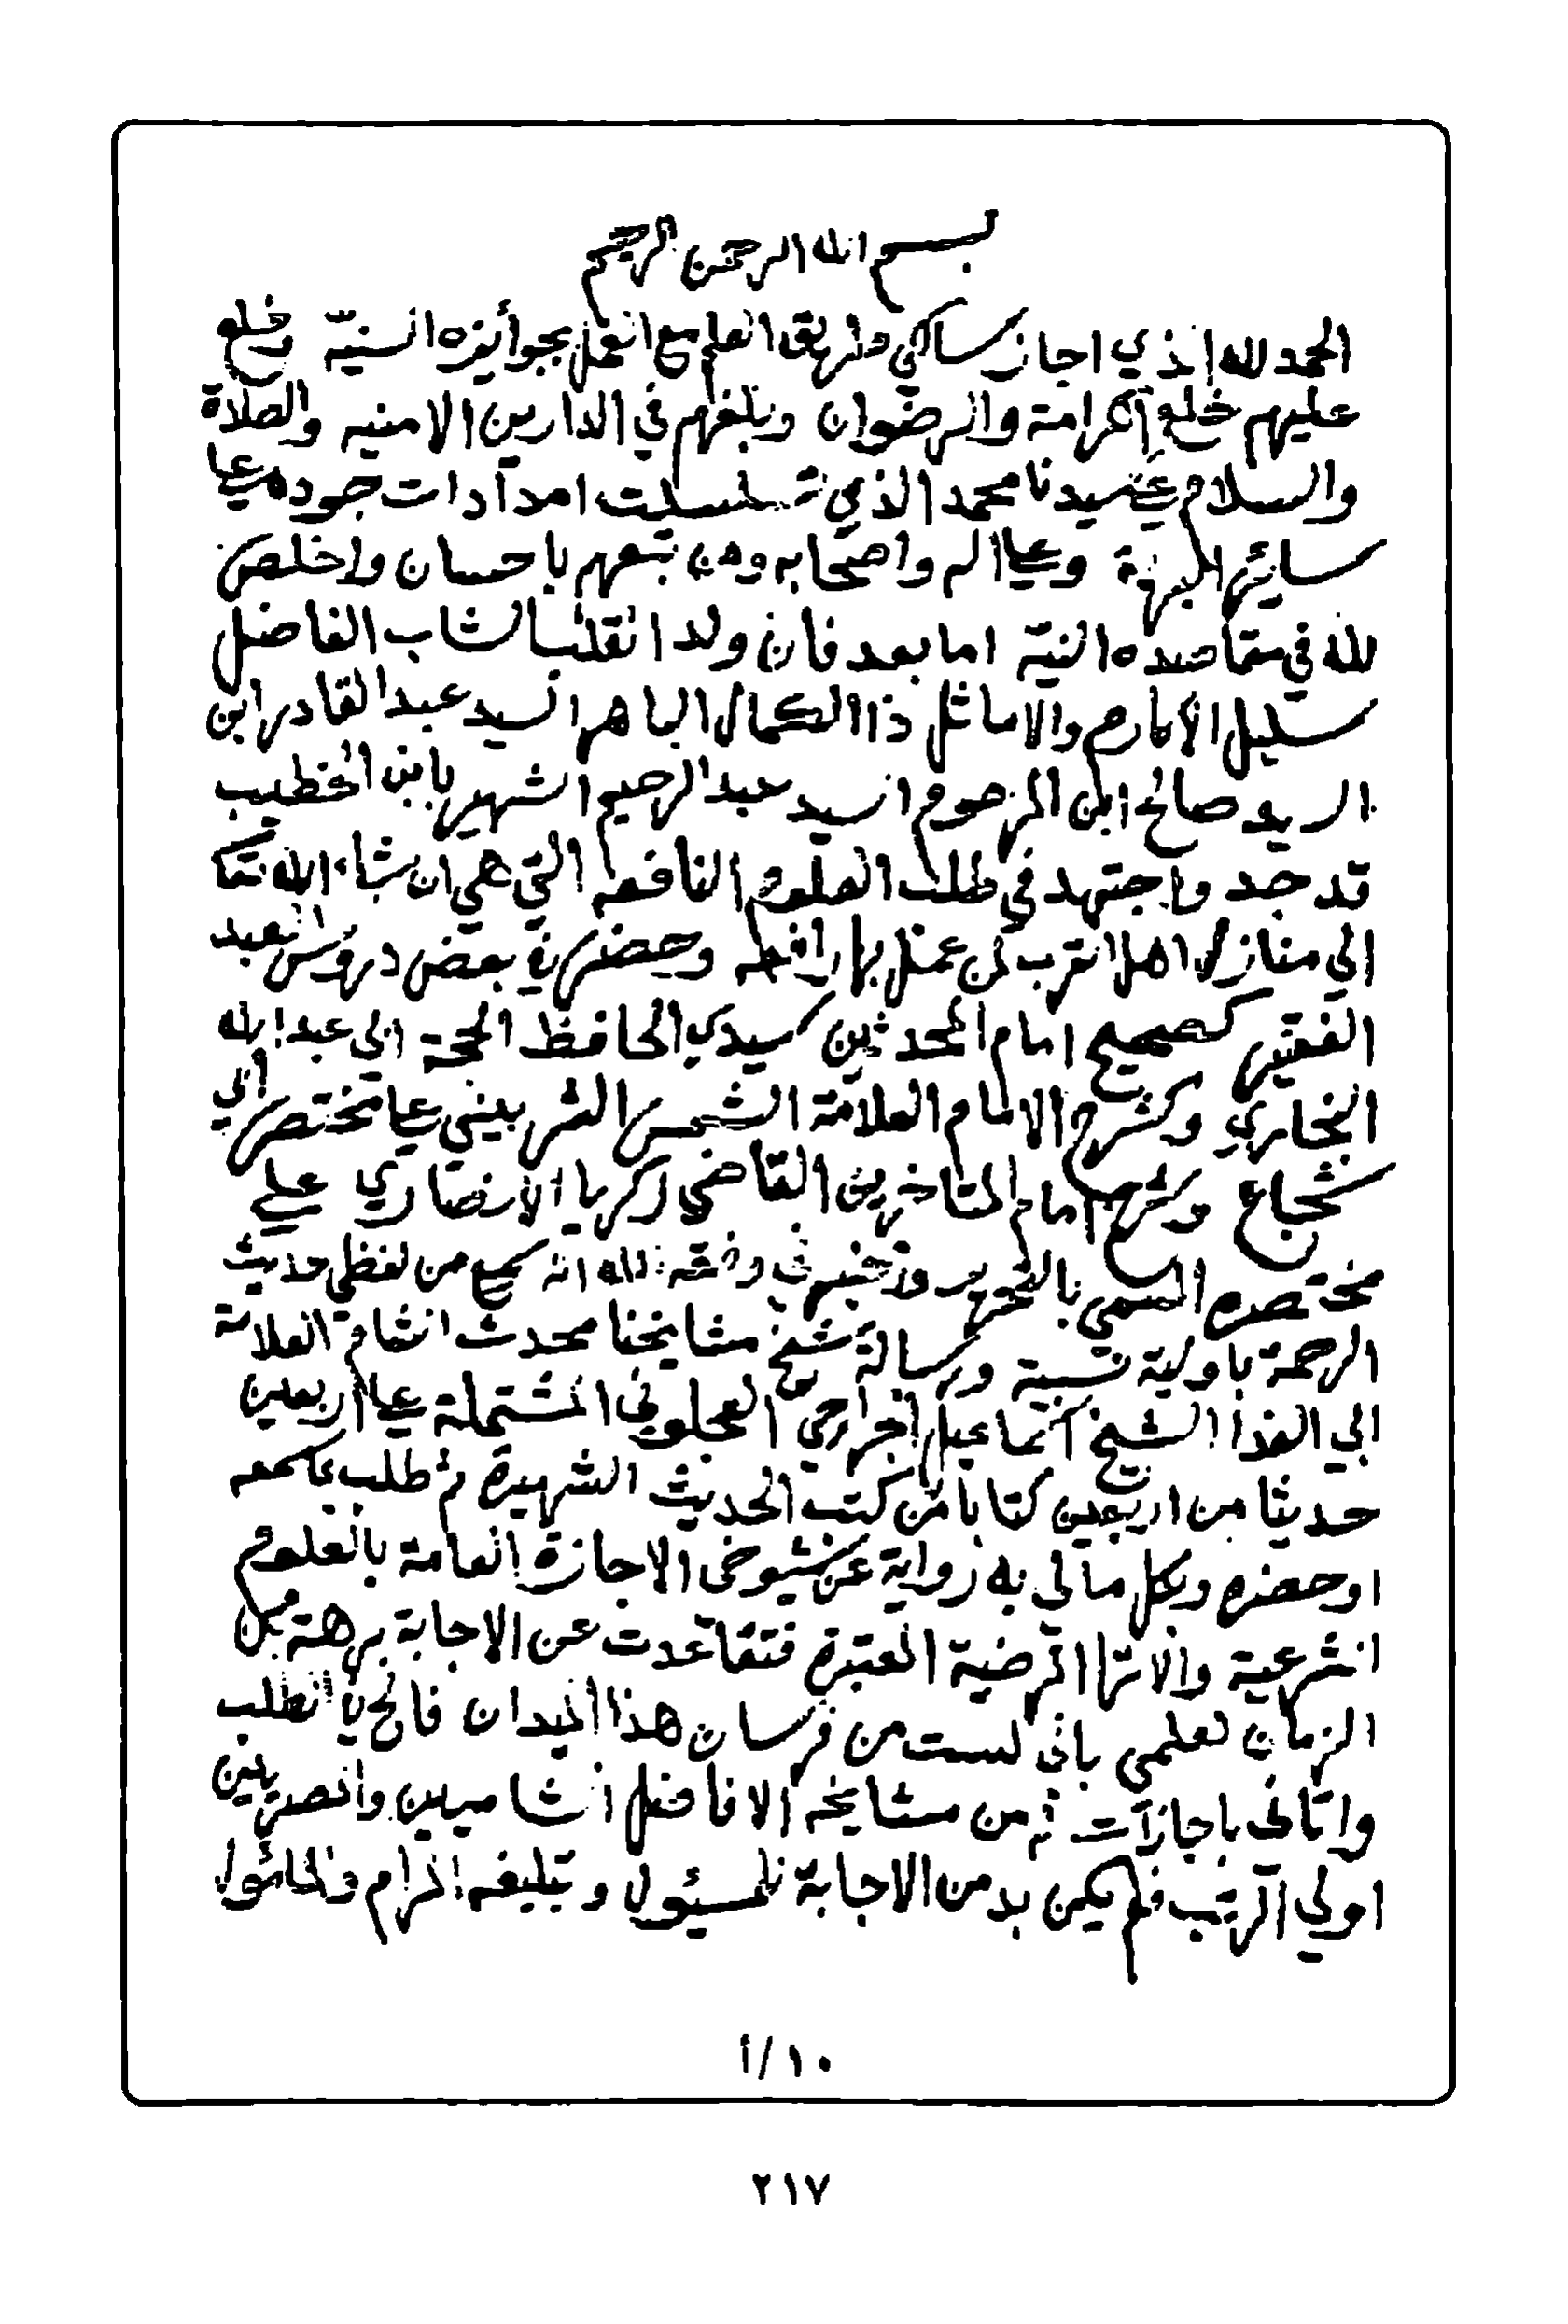 بسم الله الرحمن الرحيم
الحمد لله الذي اجاز سالكي طريق العلم مع العمل بجوائزه السنيّه وخلع
عليهم خلع الكرامة والرضوان وبلغهم في الدارين الامنيه والصلاة
والسلام على سيدنا محمد الذي تسلسلت امدادات جوده على
سائر البرية وعلى اله واصحابه ومن تبعهم باحسان واخلص
لله في مقاصده النيّه اما بعد فان ولد القلب الشاب الفاضل
سليل الاكارم والاماثل ذا الكمال الباهر السيد عبد القادر ابن
السيد صالح ابن المرحوم السيد عبد الرحيم الشهير بابن الخطيب
قد جد واجتهد في طلب العلوم النافعه التي هي ان شاء الله تعا
الى منازل اهل القرب لمن عمل بها رافعه وحضر في بعض دروس العبد
الفقير كصحيح امام المحدثين سيدي الحافظ الحجة ابي عبد الله
البخاري وكشرح الامام العلامة الشمس الشربيني على مختصر ابي
شجاع وشرح امام المتاخرين القاضي زكريا الانصاري على
مختصره المسمى بالتحرير واخبرني وفقه الله انه سمع من لفظي حديث
الرحمة باولية نسبية ورسالة شيخ مشايخنا محدث الشام العلامة
ابي الفدا الشيخ اسماعيل الجراحي العجلوني المشتملة على اربعين
حديثا من اربعين كتابا من كتب الحديث الشهيرة ثم طلب بما سمعه
او حضره وبكل مالي به رواية عن شيوخي الاجازة العامة بالعلوم
الشرعية والاتها المرضية المعتبره فتقاعدت عن الاجابة برهة من
الزمان لعلمي باني لست من فرسان هذا الميدان فالح في الطلب
واتاني باجازات له من مشايخه الافاضل الشاميين والمصريين
اولي الرتب فلم يكن بد من الاجابة للمسئول وتبليغه المرام والمأمول
١٠/أ
٢١٧